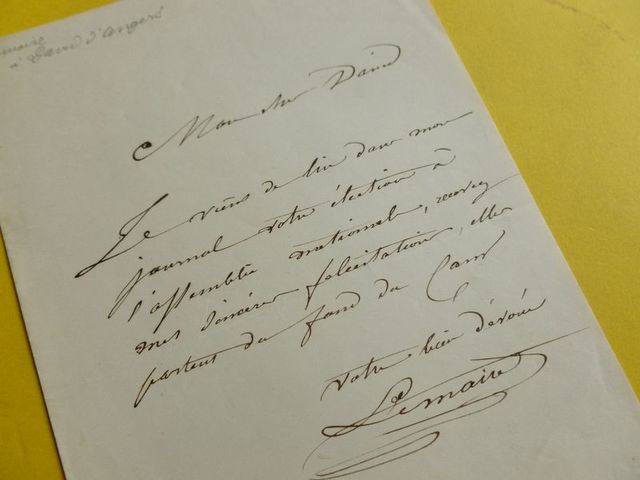 Lemaire
à David d'Angers
Mon cher David
Je viens de lire dans mon
journal votre élection à
l'assemblée nationale, recevez
mes sincères felicitation, elles
partent du fond du Cœur
votre bien dévoué
Lemaire